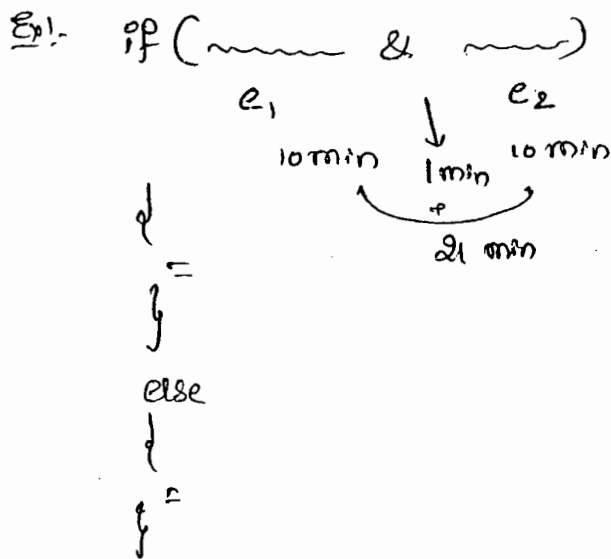 Ex1:- if ( ~~~~ & ~~~~ )
e1 e2
10 min 1 min 10 min
+
21 min
{
=
}
else
{
=
}